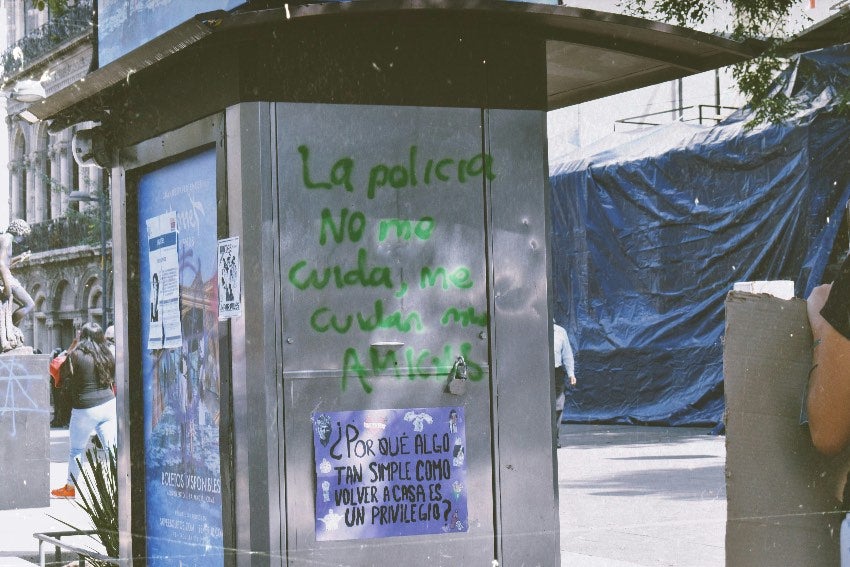 La policía
NO me
cuida, me
cuidan mis
AMIGAS
¿POR QUÉ ALGO
TAN SIMPLE COMO
VOLVER A CASA ES
UN PRIVILEGIO?
BOLETOS DISPONIBLES